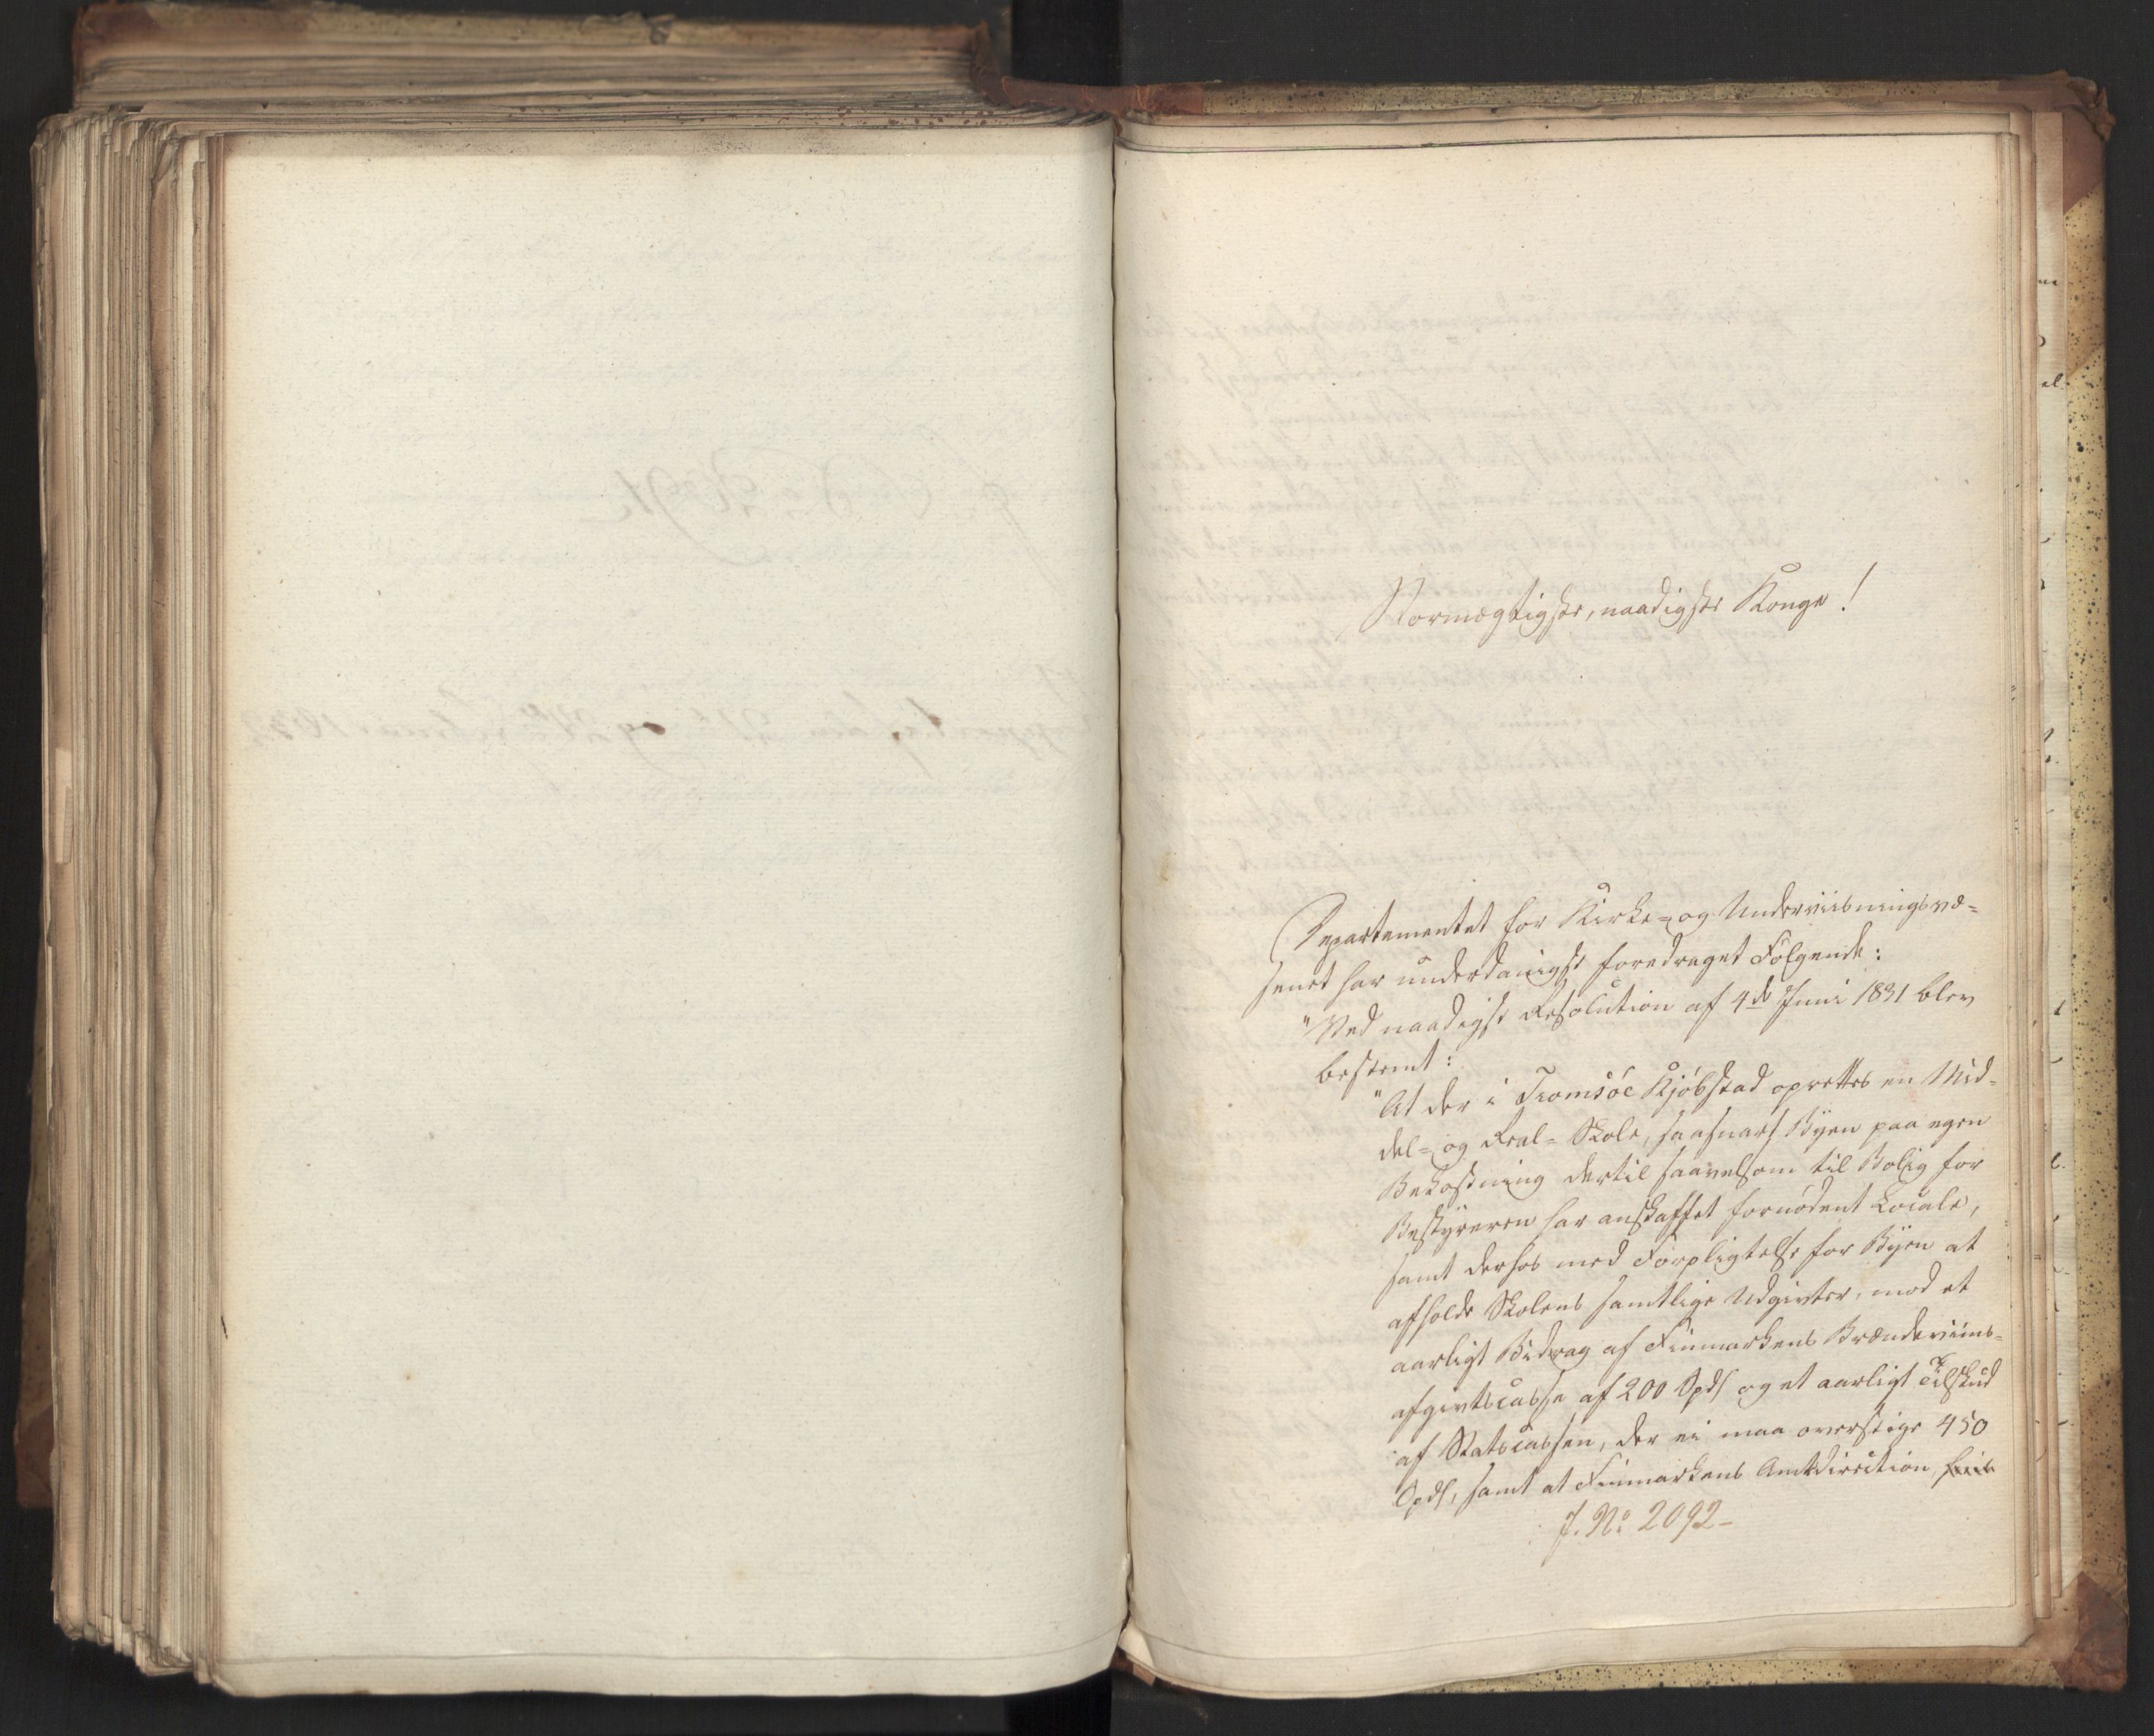 Stormægtigste, naadigste Konge!
Departementet for Kirke- og Underviisningsvæ-
senet har underdanigst foredraget Følgende:
"Ved naadigst Resolution af 4de Juni 1831 blev
bestemt:
"At der i Tromsöe Kjøbstad oprettes en Mid-
del- og Real-Skole, saasnart Byen paa egen
Bekostning dertil saavelsom til Bolig for
Bestyreren har anskaffet fornødent Locale,
samt derhos med Forpligtelse for Byen at
afholde Skolens samtlige Udgivter, mod et
aarligt Bidrag af Finmarkens Brændeviins-
afgivtscasse af 200 Spd og et aarligt Tilskud
af Statscassen, der ei maa overstige 450
Spd, samt at Finmarkens Amtsdirection
J. No. 2092-